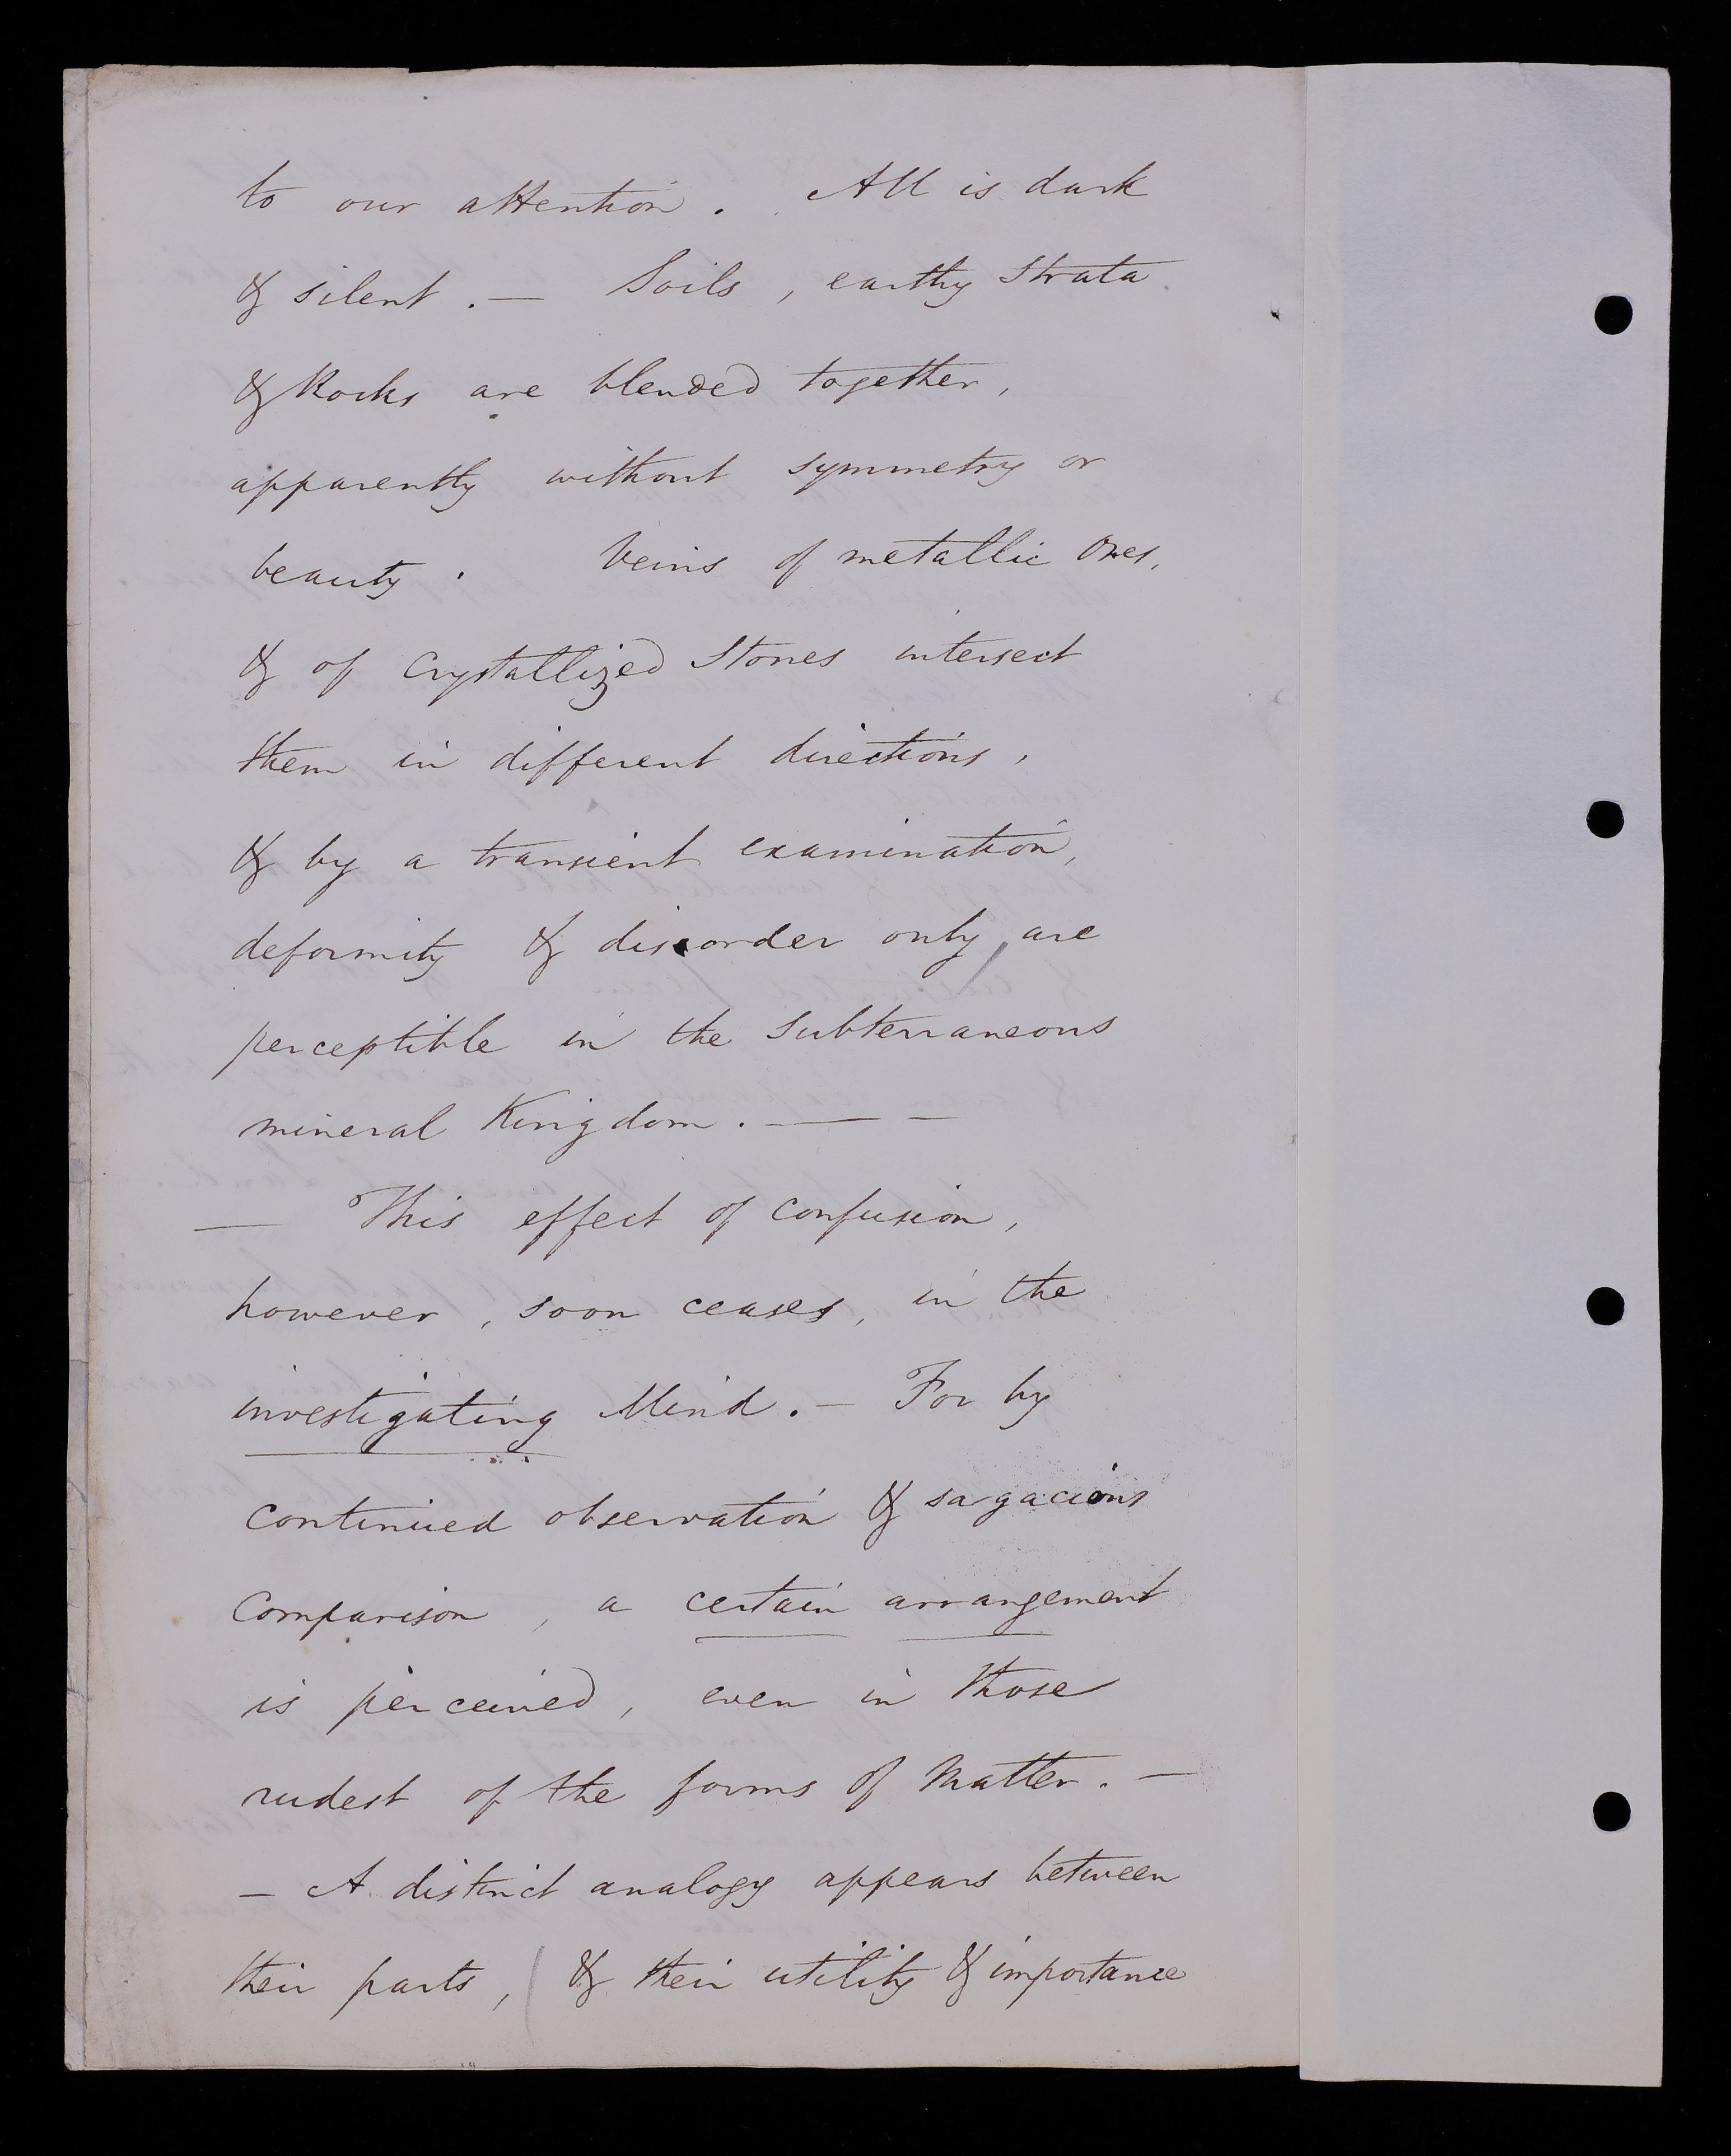 to our attention. All is dark
& silent. — Soils, earthy Strata
& Rocks are blended together,
apparently without symmetry or
beauty. Veins of metallic Ores,
& of Crystallized Stones intersect
them in different directions,
& by a transient examination,
deformity & disorder only, are
perceptible in the Subterraneous
mineral Kingdom. — —
— This effect of Confusion,
however, soon ceases, in the
investigating Mind. — For by
Continued observation & sagacious
Comparison, a certain arrangement
is perceived, even in those
rudest of the forms of Matter. —
— A distinct analogy appears between
their parts, & their utility & importance